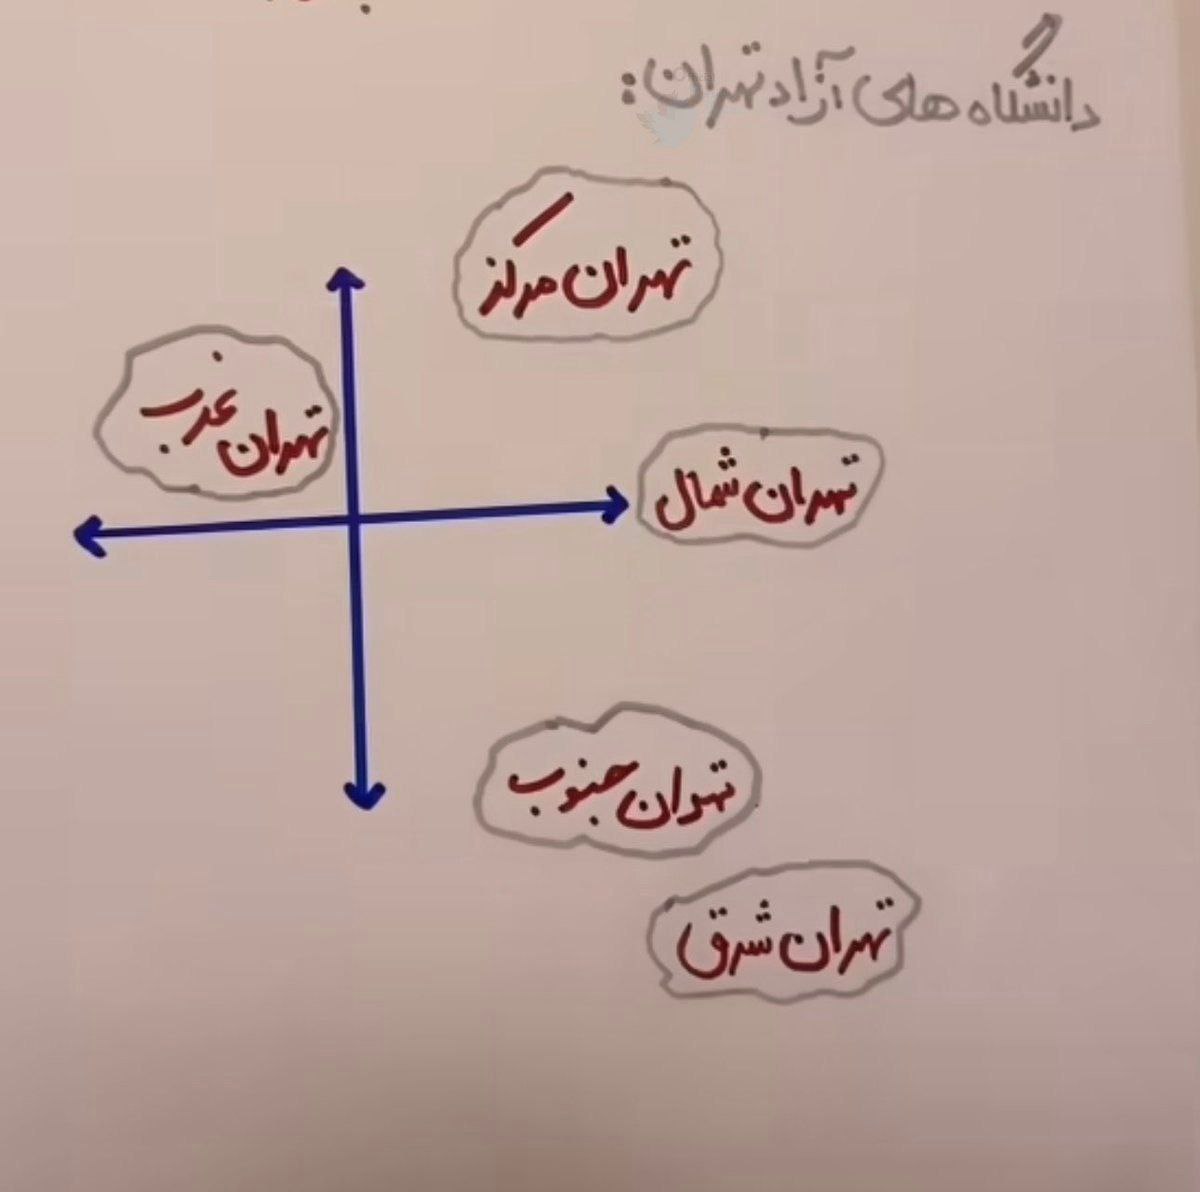 دانشگاه های آزاد تهران:
تهران مرکز
تهران غرب
تهران شمال
تهران جنوب
تهران شرق